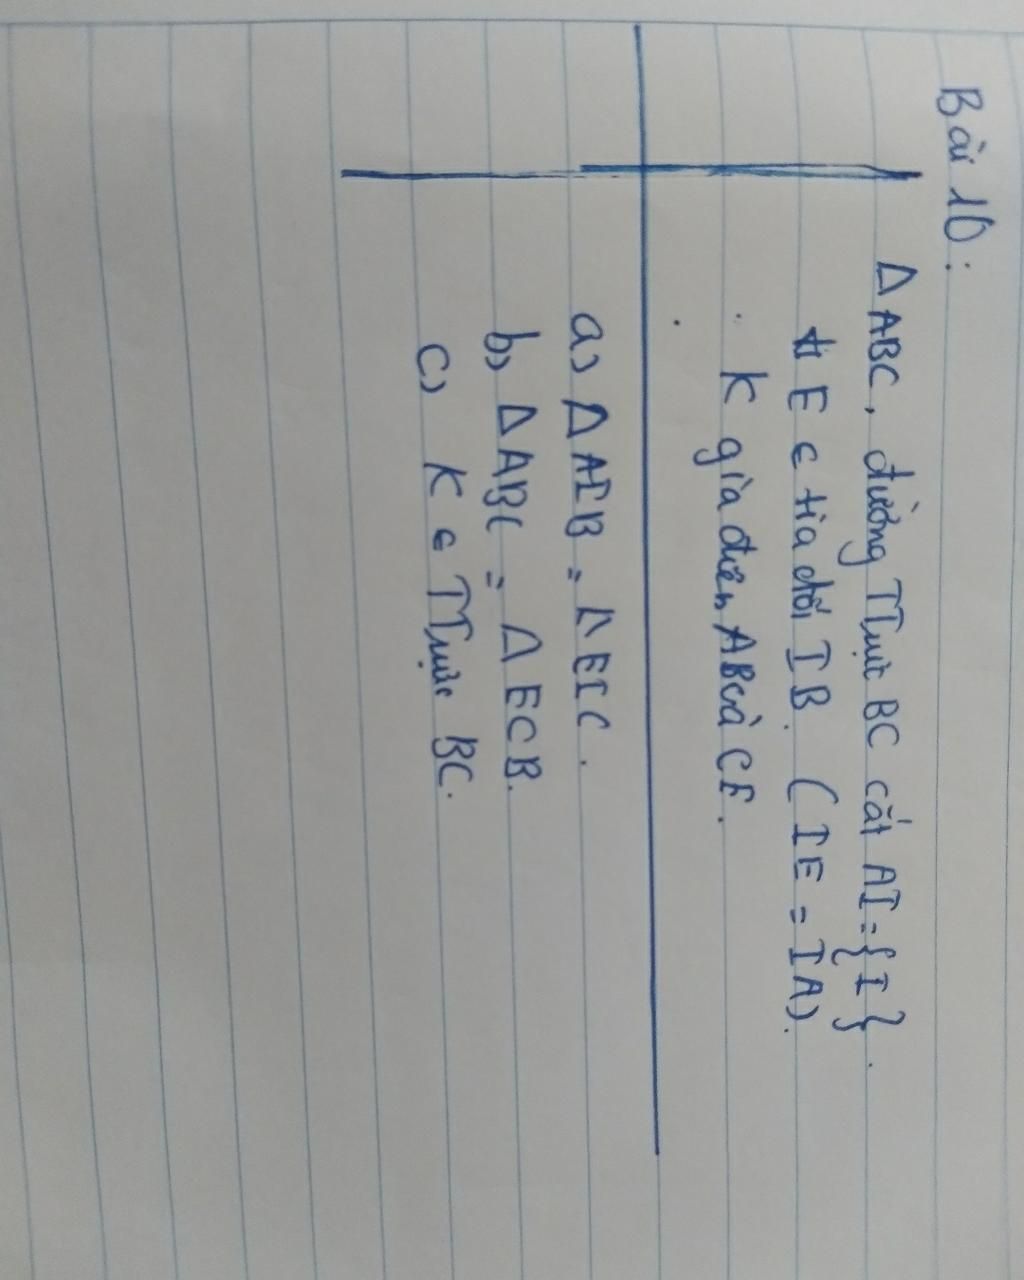 Bài 10:
Δ ABC, đường TTrực BC cắt AI = {I}.
E ∈ tia đối IB. (IE = IA).
K giao điểm AB và CE.
a) Δ AIB = Δ EIC.
b) Δ ABC = Δ ECB.
c) K ∈ TTrực BC.